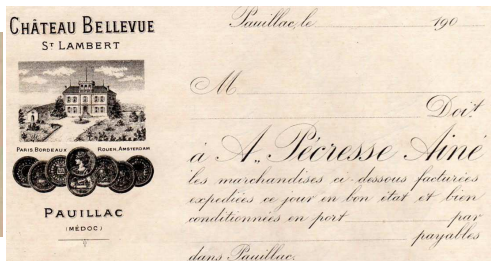 CHÂTEAU BELLEVUE
ST LAMBERT
PARIS.BORDEAUX ROUEN.AMSTERDAM
PAUILLAC
(MÉDOC)
Pauillac, le 190
M
Doit
à A. Pécresse Ainé
les marchandises ci-dessous facturées
expédiées ce jour en bon état et bien
conditionnées en port par
payables
dans Pauillac.